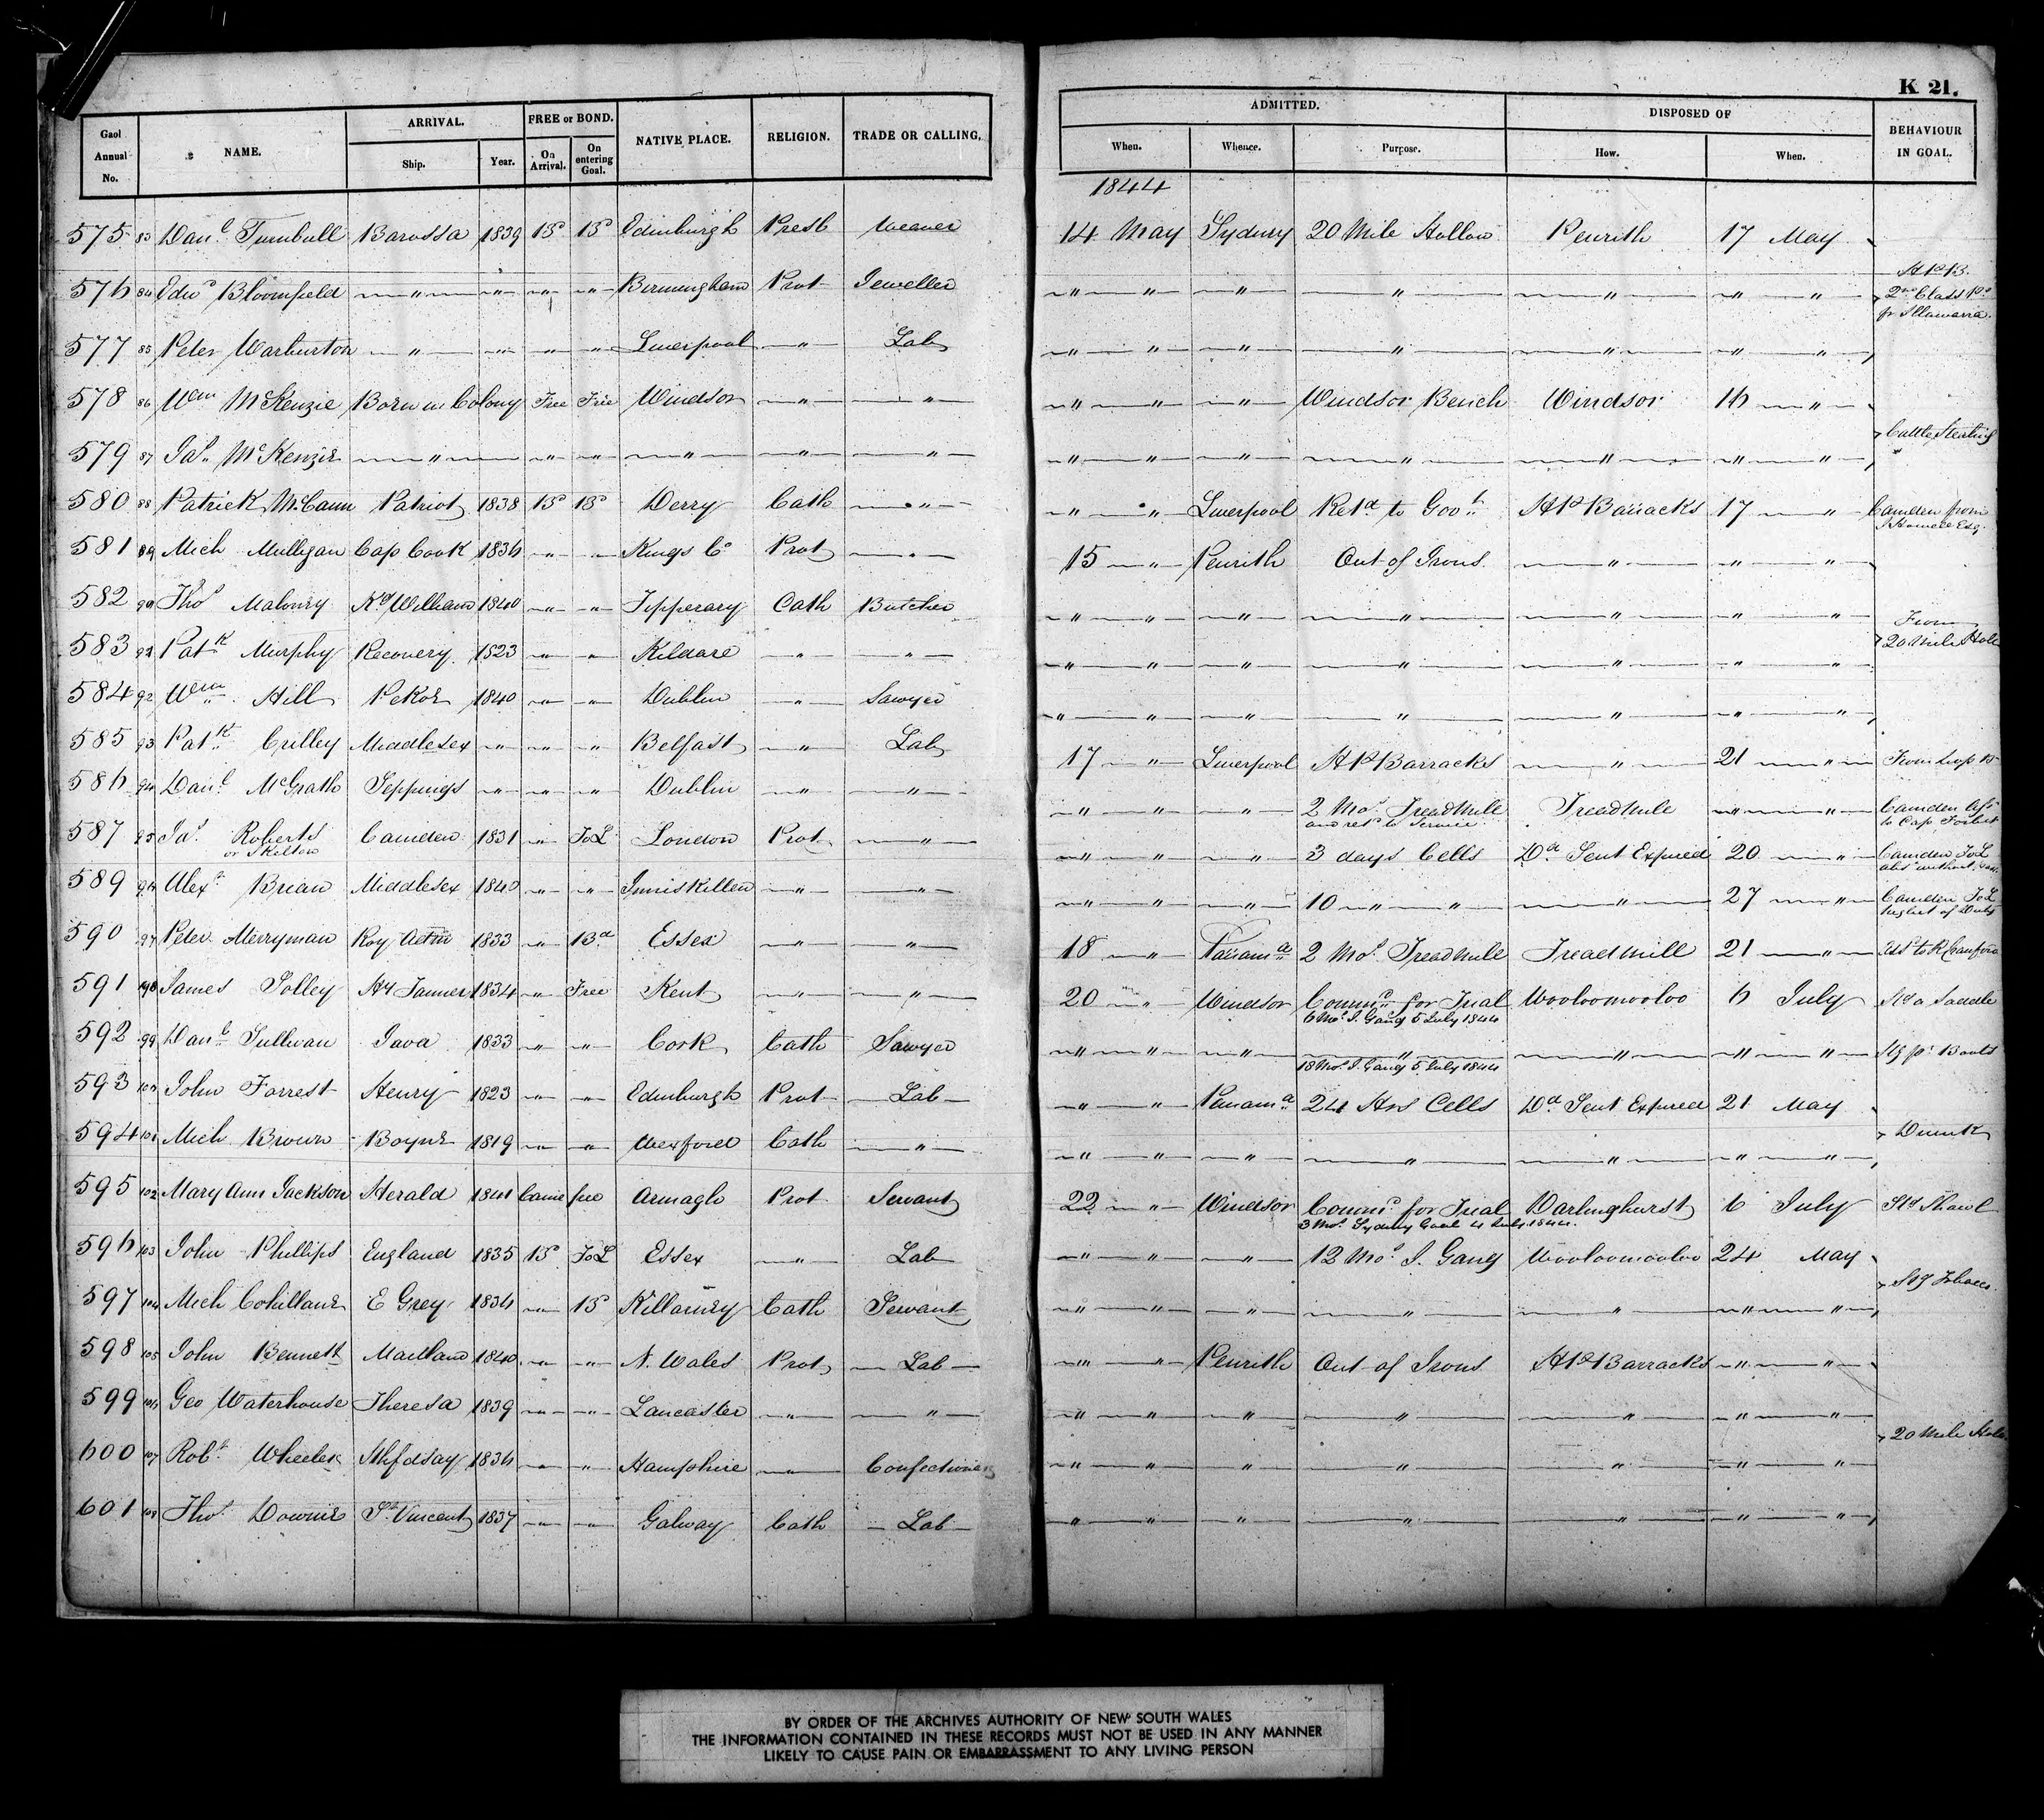 K 21.
Gaol Annual No. NAME. ARRIVAL. Ship. Year. FREE or BOND. On Arrival. On entering Goal. NATIVE PLACE. RELIGION. TRADE OR CALLING. ADMITTED. When. Whence. Purpose. DISPOSED OF How. When. BEHAVIOUR IN GOAL.
1844
575 83 Danl Turnbull Barossa 1839 Bd Bd Edinburgh Presb Weaver 14 May Sydney 20 Mile Hollow Penrith 17 May
576 84 Edwd Bloomfield " " " " Birmingham Prot Jeweller " " " " " " " HPB. 2nd Class Pr fr Illawarra.
577 85 Peter Warburton " " " " Liverpool " Lab " " " " " " "
578 86 Wm McKenzie Born in Colony Free Free Windsor " " " " " Windsor Bench Windsor 16 "
579 87 Jas McKenzie " " " " " " " " " " " " " Cattle Stealing
580 88 Patrick McCann Patriot 1838 Bd Bd Derry Cath " " " Liverpool Retd to Govt HP Barracks 17 " Camden from
581 89 Mich Mulligan Cap Cook 1836 " " Kings Co Prot " 15 " Penrith Out of Irons " " "
582 90 Thos Maloney Kg William 1840 " " Tipperary Cath Butcher " " " " " " "
583 91 Patk Murphy Recovery 1823 " " Kildare " " " " " " " " " From 20 Mile Holl
584 92 Wm Hill Pekoe 1840 " " Dublin " Sawyer " " " " " " "
585 93 Patk Crilley Middlesex " " " Belfast " Lab 17 " Liverpool HP Barracks " 21 "
586 94 Danl McGrath Jeppings " " " Dublin " " " " " 2 Mos Treadmill and ret to Service Treadmill " " Camden Assd to Cap
587 95 Jas Roberts or Skelton Camden 1831 " ToL London Prot " " " " 3 days Cells Do Sent Expired 20 " Camden ToL abst without
589 96 Alexr Brian Middlesex 1840 " " Inniskillen " " " " " 10 " " " 27 " Camden ToL neglect of Duty
590 97 Peter Merryman Roy Adm 1833 " Bd Essex " " 18 " Parrama 2 Mos Treadmill Treadmill 21 "
591 98 James Solley Hy Tanner 1834 " Free Kent " " 20 " Windsor Commd for Trial Wooloomooloo 6 July Stg a Saddle
6 Mos I. Gang 5 July 1844
592 99 Danl Sullivan Java 1833 " " Cork Cath Sawyer " " " " " " " Stg pr Boots
18 Mos I. Gang 5 July 1844
593 100 John Forrest Henry 1823 " " Edinburgh Prot Lab " " Parrama 24 Hrs Cells Do Sent Expired 21 May
594 101 Mich Brown Boyne 1819 " " Wexford Cath " " " " " " " " Drunk
595 102 Mary Ann Jackson Herald 1841 Came free Armagh Prot Servant 22 " Windsor Commd for Trial Darlinghurst 6 July Stg Shawl
3 Mos Sydney Gaol 4 July 1844.
596 103 John Phillips England 1835 Bd ToL Essex " Lab " " " 12 Mos I. Gang Wooloomooloo 24 May
597 104 Mich Cohillane E Grey 1836 " Bd Killarney Cath Servant " " " " " " " Stg Tobacco
598 105 John Bennett Maitland 1840 " " N. Wales Prot Lab " " Penrith Out of Irons HP Barracks " "
599 106 Geo Waterhouse Theresa 1839 " " Lancaster " " " " " " " " "
600 107 Robt Wheeler 1836 " " Hampshire " Confectioner " " " " " " " 20 Mile Hollow
601 108 Thos Downie St Vincent 1837 " " Galway Cath Lab " " " " " " "
BY ORDER OF THE ARCHIVES AUTHORITY OF NEW SOUTH WALES
THE INFORMATION CONTAINED IN THESE RECORDS MUST NOT BE USED IN ANY MANNER
LIKELY TO CAUSE PAIN OR EMBARRASSMENT TO ANY LIVING PERSON